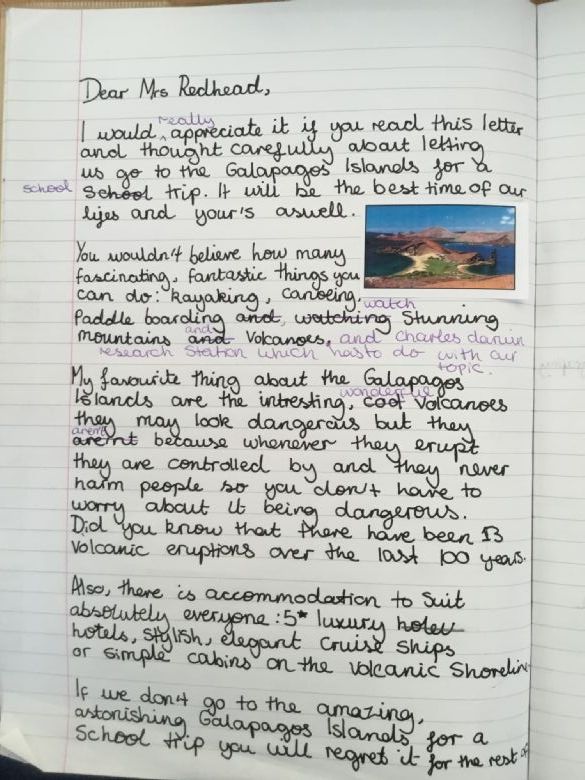 Dear Mrs Redhead,
I would really appreciate it if you read this letter
and thought carefully about letting
us go to the Galapagos Islands for a
school School trip. It will be the best time of our
lifes and your's aswell.
You wouldn't believe how many
fascinating, fantastic things you
can do: kayaking, canoeing,
Paddle boarding and, watching watch Stunning
mountains and and Volcanoes, and charles darwin
research station which has to do with our
topic.
My favourite thing about the Galapagos
Islands are the intresting, cool wonderful Volcanoes
they may look dangerous but they
aren't arernt because whenever they erupt
they are controlled by and they never
harm people so you don't have to
worry about it being dangerous.
Did you know that there have been 13
Volcanic eruptions over the last 100 years.
Also, there is accommodation to Suit
absolutely everyone: 5* luxury hotels
hotels, stylish, elegant Cruise Ships
or simple cabins on the volcanic Shoreline
If we don't go to the amazing,
astonishing Galapagos Islands for a
School trip you will regret it for the rest of